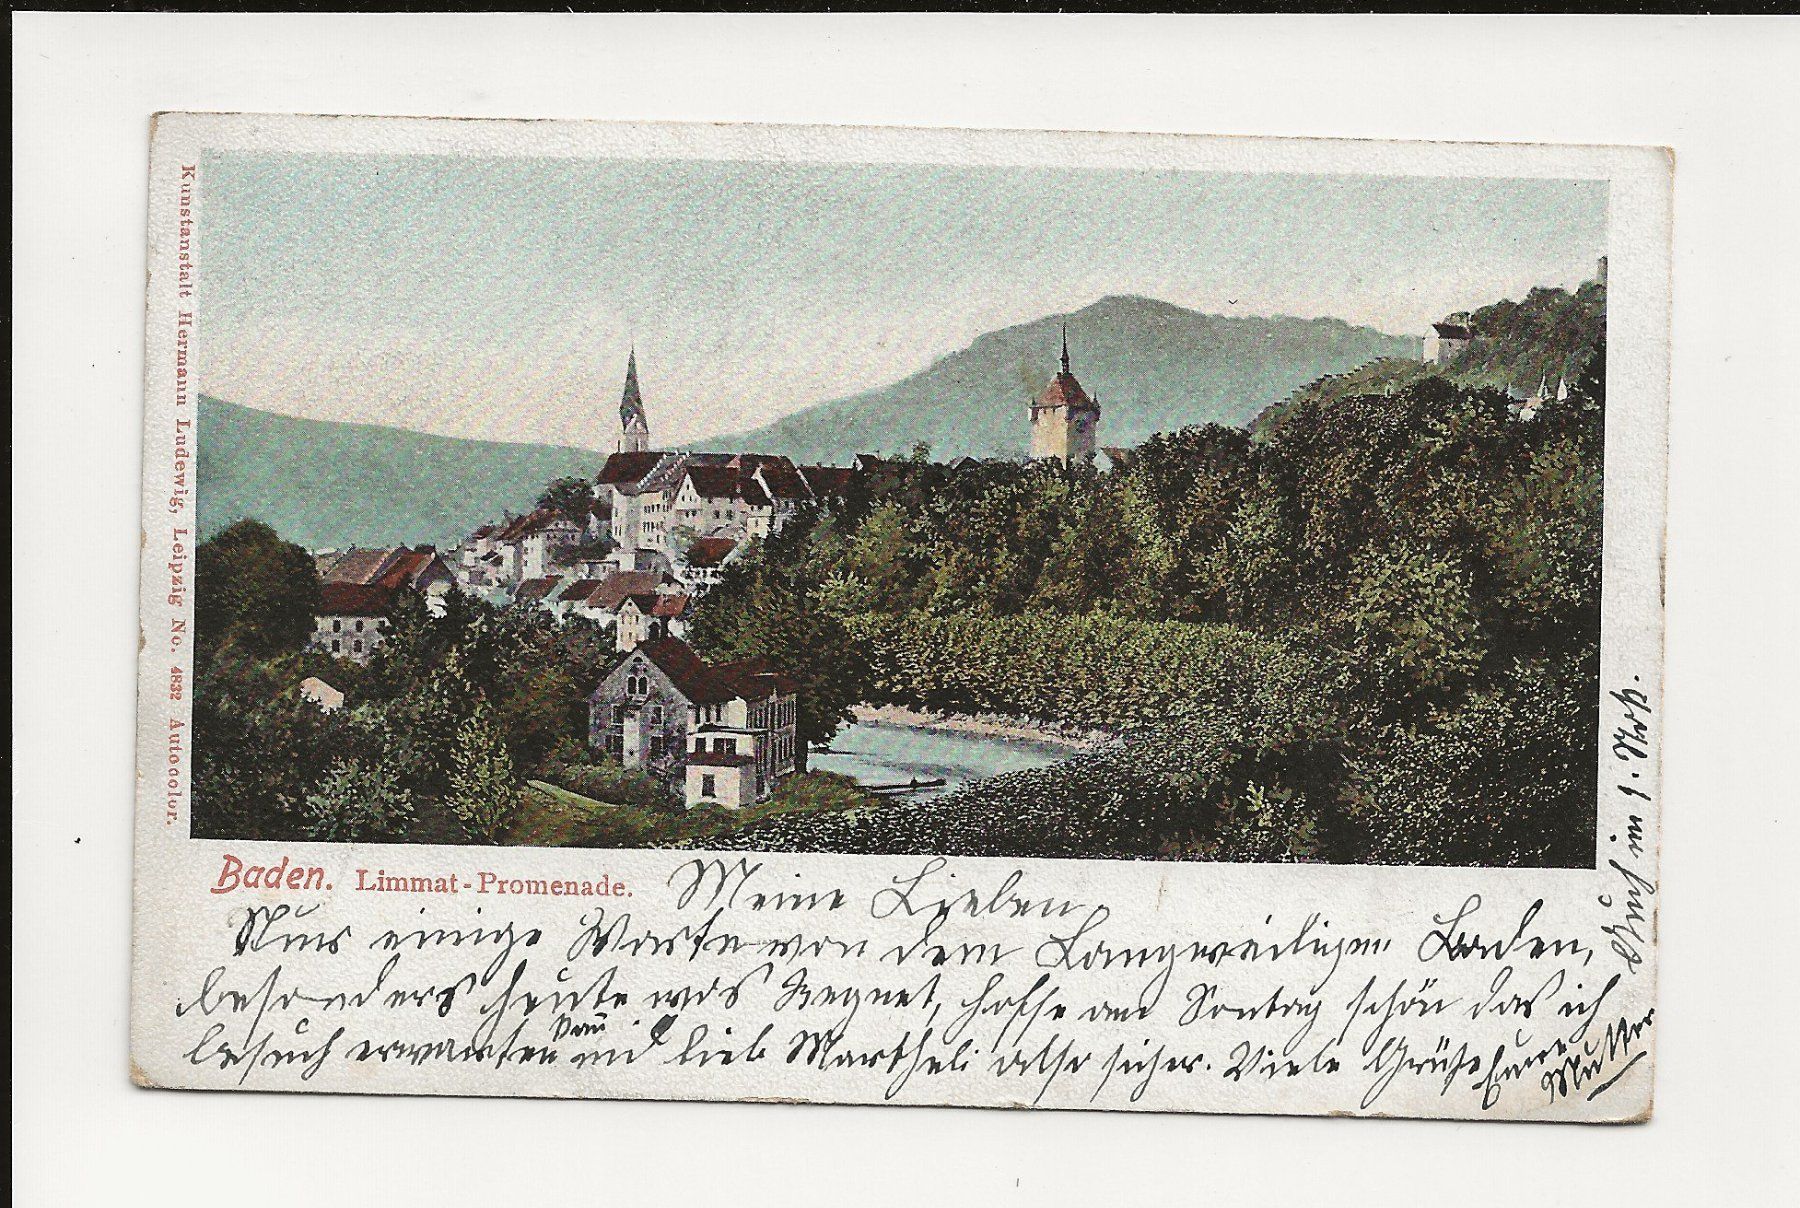 Kunstanstalt Hermann Ludewig, Leipzig No. 4832 Autocolor.
Baden. Limmat-Promenade.
Meine Lieben.
Nur einige Worte von dem Langweiligen Baden,
besonders heute wo's Regnet, hoffe am Sontag schön das ich
besuch erwarten kan und lieb Martheli also sicher. Viele Grüße Eure
Mutter